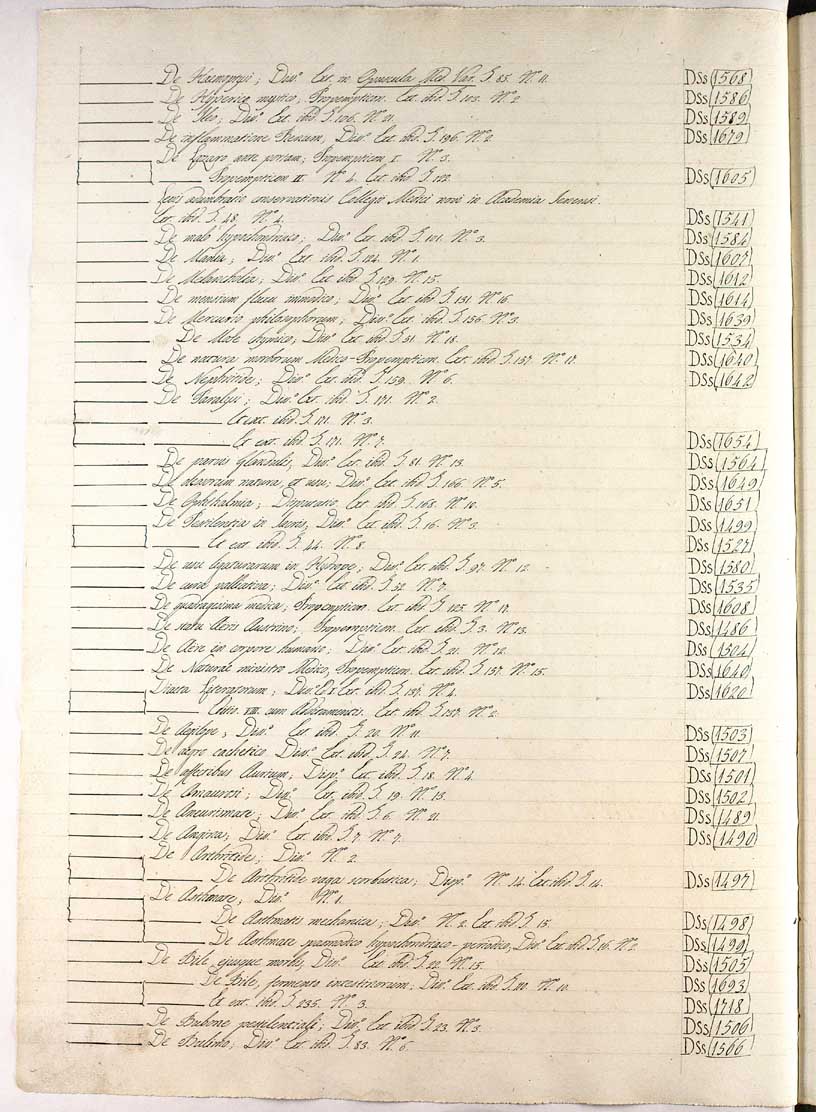 De Haemoptysi; Diss.e Ext. in Opuscula Med. Var. T. 85. N.o 11. DSs 1568
De Hyperico mystico, Propempticon. Ext. ibid. T. 103. N.o 2 DSs 1586
De Ileo; Diss.e Ext. ibid. T. 106. N.o 21. DSs 1589
De inflammatione Renum, Diss.e Ext. ibid. T. 196. N.o 2 DSs 1679
De Lazaro ante portam; Propempticon I. N.o 3.
Propempticon II. N.o 4. Ext. ibid. T. 122. DSs 1605
adumbratio conservationis Collegii Medici novi in Academia Jenensi.
Ext. ibid. T. 48. N.o 4. DSs 1541
De malo hypochondriaco; Diss.e Ext. ibid. T. 101. N.o 3. DSs 1584
De Mania; Diss.e Ext. ibid. T. 124. N.o 1. DSs 1607
De Melancholia; Diss.e Ext. ibid. T. 129. N.o 15. DSs 1612
De mensium fluxu immodico; Diss.e Ext. ibid. T. 131. N.o 16. DSs 1614
De Mercurio philosophorum; Diss.e Ext. ibid. T. 156. N.o 3. DSs 1639
De chymico; Diss.e Ext. ibid. T. 51. N.o 18. DSs 1534
De natura morborum Medico-Propempticon. Ext. ibid. T. 157. N.o 17. DSs 1640
De Nephritide; Diss.e Ext. ibid. T. 159. N.o 6. DSs 1642
De Paralysi; Diss.e Ext. ibid. T. 171. N.o 2.
Le ext. ibid. T. 171. N.o 3.
Le ext. ibid. T. 171. N.o 7. DSs 1654
De parvis Glandulis, Diss.e Ext. ibid. T. 81. N.o 13. DSs 1564
De natura, et usu; Diss.e Ext. ibid. T. 166. N.o 5. DSs 1649
De Ophthalmia; Disputatio. Ext. ibid. T. 168. N.o 10. DSs 1651
De Pestilentia in Diss.e Ext. ibid. T. 16. N.o 3. DSs 1499
Le ext. ibid. T. 44. N.o 8. DSs 1527
De usu ligaturarum in Hydrope; Diss.e Ext. ibid. T. 97. N.o 12. DSs 1580
De cura palliativa; Diss.e Ext. ibid. T. 52. N.o 7. DSs 1535
De quadragesima medica; Propempticon. Ext. ibid. T. 125. N.o 17. DSs 1608
De statu Aeris Austrino; Propempticon. Ext. ibid. T. 3. N.o 13. DSs 1486
De Aere in corpore humano; Diss.e Ext. ibid. T. 21. N.o 12. DSs 1504
De Naturae ministro Medico, Propempticon. Ext. ibid. T. 157. N.o 15. DSs 1640
Diaeta Literatorum; Diss.e Ext. ibid. T. 137. N.o 4. DSs 1620
VIII. cum Ext. ibid. T. 137. N.o 2.
De Aegilope; Diss.e Ext. ibid. T. 20. N.o 11. DSs 1503
De aegro cachectico Diss.e Ext. ibid. T. 24. N.o 7. DSs 1507
De affectibus Aurium; Disp.e Ext. ibid. T. 18. N.o 4. DSs 1501
De Amaurosi; Diss.e Ext. ibid. T. 19. N.o 13. DSs 1502
De Aneurismate; Diss.e Ext. ibid. T. 6. N.o 21. DSs 1489
De Angina; Diss.e Ext. ibid. T. 7. N.o 7. DSs 1490
De Arthritide; Diss.e N.o 2.
De Arthritide vaga scorbutica; Disp.e N.o 14. Ext. ibid. T. 14. DSs 1497
De Asthmate, Diss.e N.o 1.
De Asthmatis mechanica; Diss.e N.o 2. Ext. ibid. T. 15. DSs 1498
De Asthmate spasmodico hypochondriaco-periodico; Diss.e Ext. ibid. T. 16. N.o 2 DSs 1499
De Bile, ejusque morbis, Diss.e Ext. ibid. T. 22. N.o 15. DSs 1505
De Bile, fermento intestinorum; Diss.e Ext. ibid. N.o 10. DSs 1693
Le ext. ibid. T. 235. N.o 3. DSs 1718
De Bubone pestilentiali; Diss.e Ext. ibid. T. 23. N.o 3. DSs 1506
De Bulimo; Diss.e Ext. ibid. T. 83. N.o 6. DSs 1566